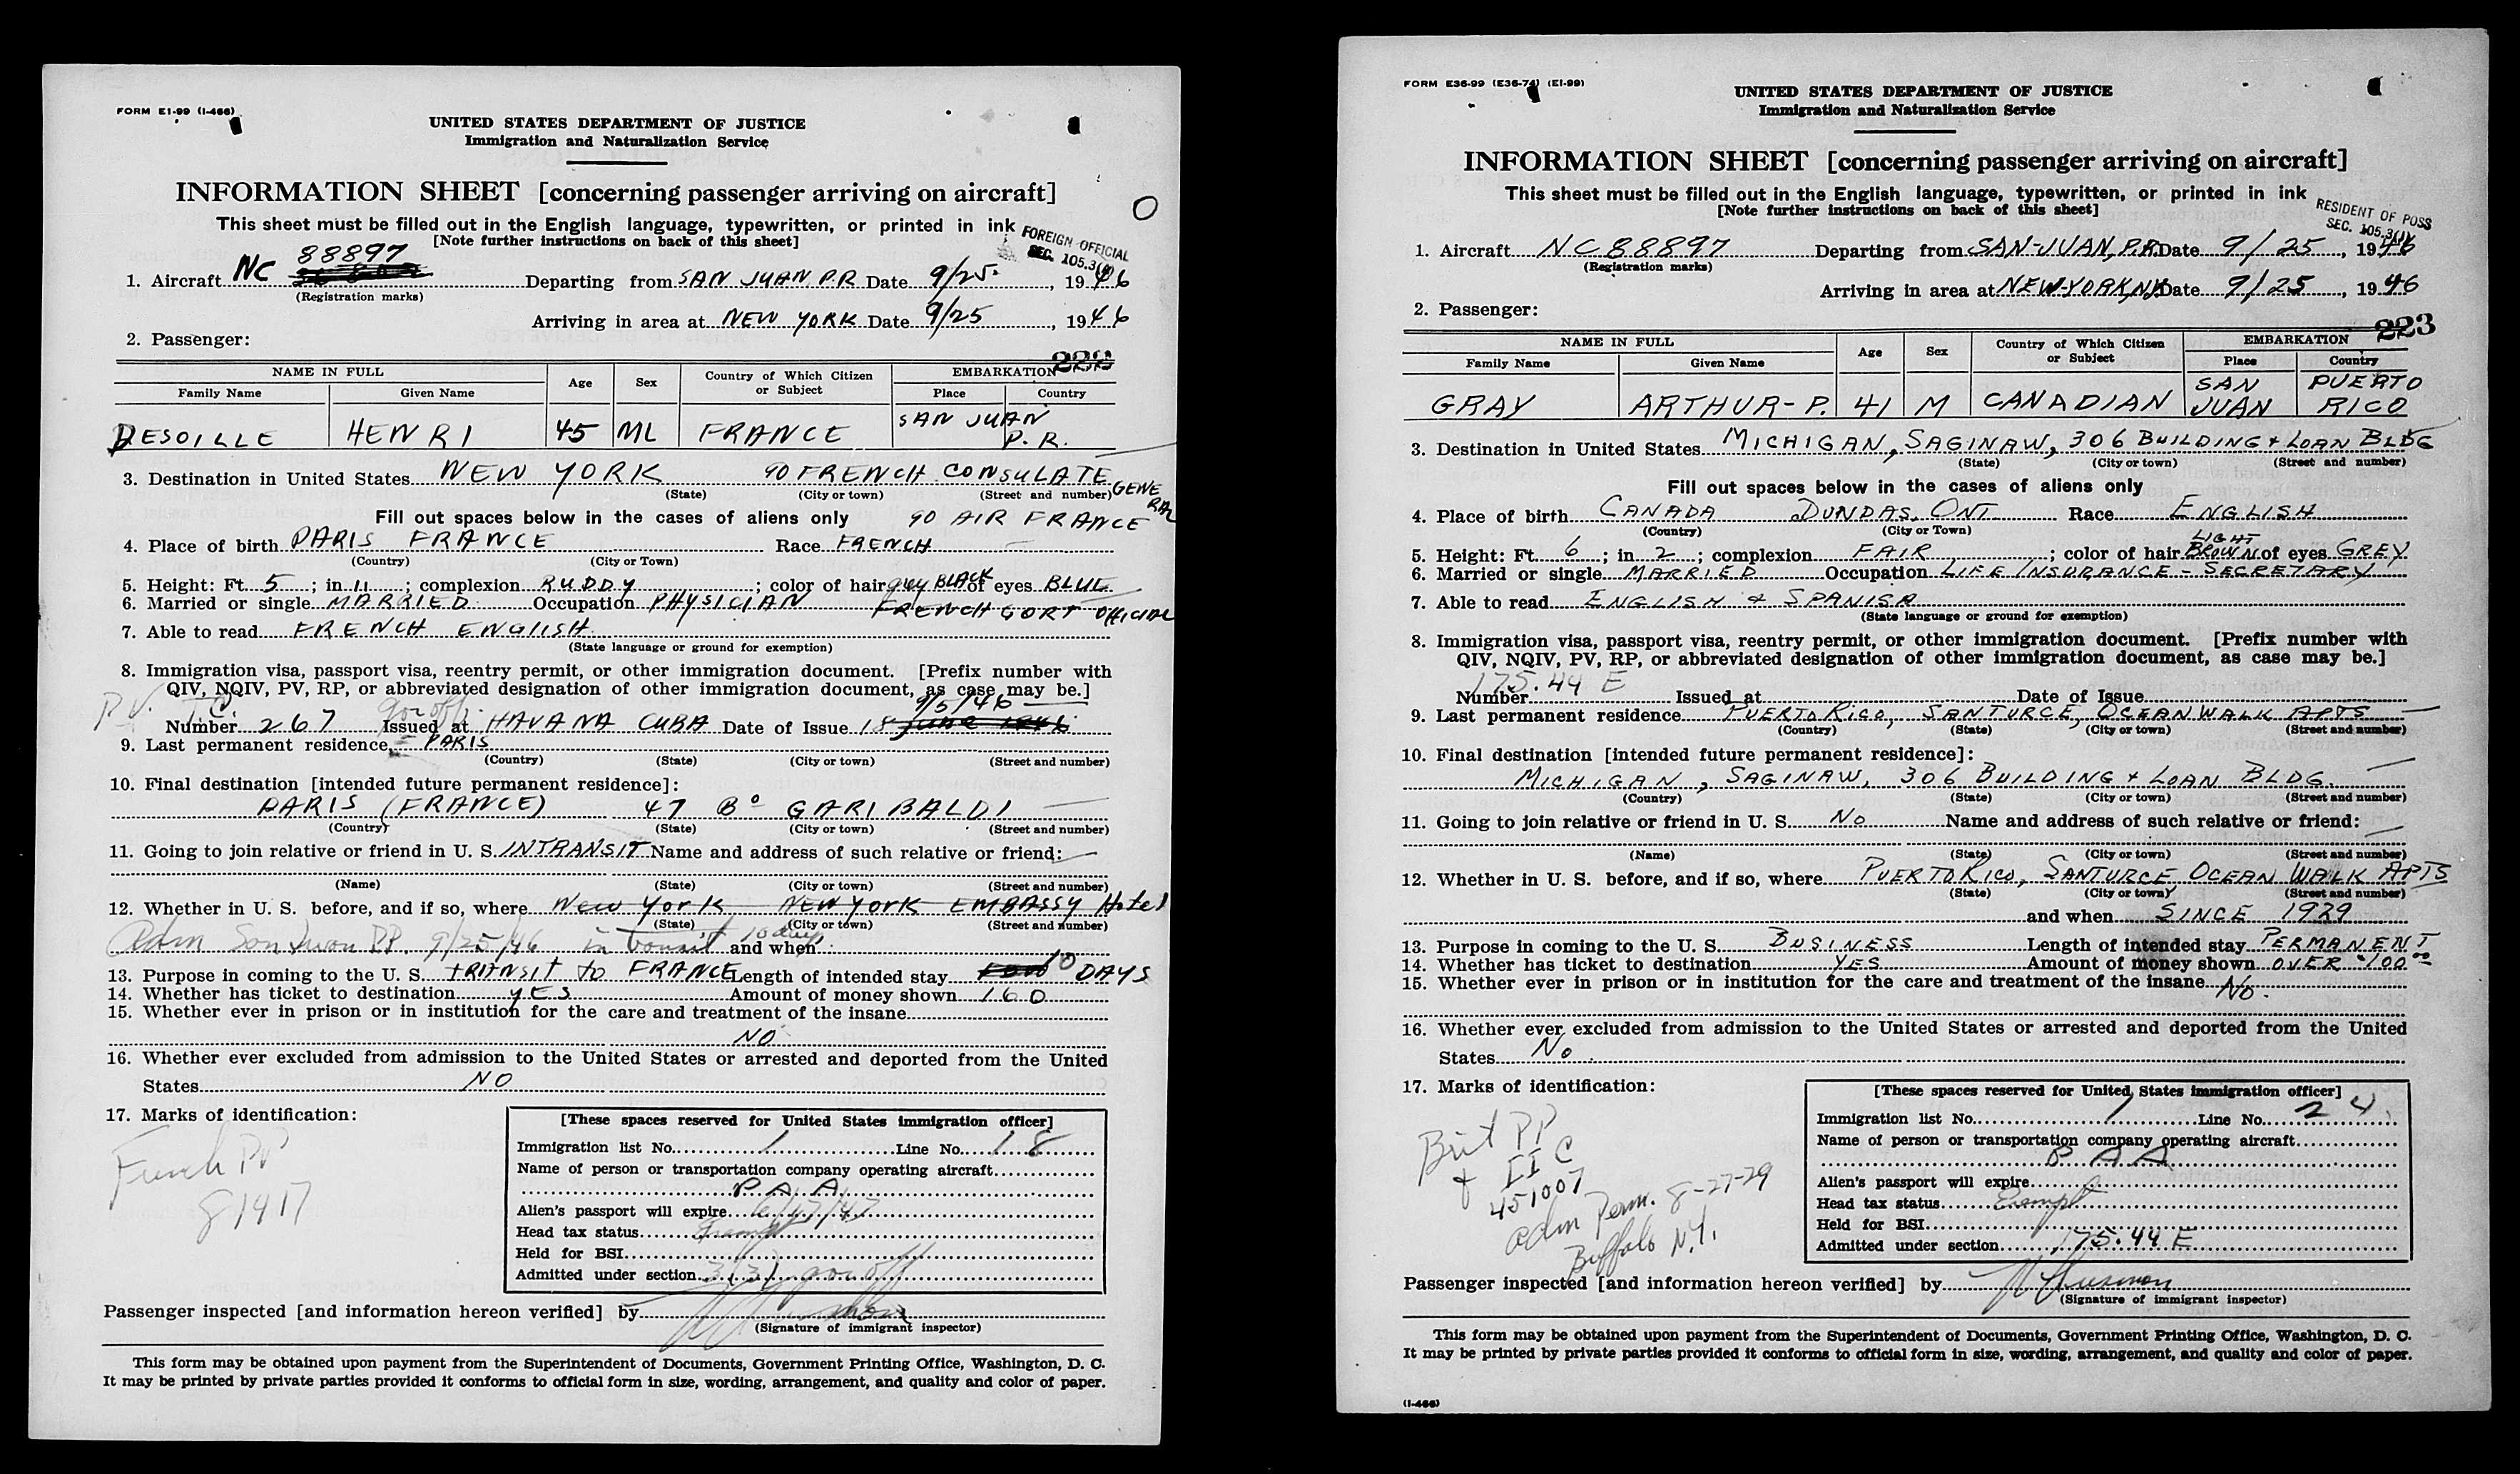 FORM E1-99 (I-466)
UNITED STATES DEPARTMENT OF JUSTICE
Immigration and Naturalization Service
INFORMATION SHEET [concerning passenger arriving on aircraft]
This sheet must be filled out in the English language, typewritten, or printed in ink
[Note further instructions on back of this sheet]
FOREIGN OFFICIAL
SEC. 105.3
88897
1. Aircraft NC Departing from SAN JUAN P.R Date 9/25, 1946
(Registration marks)
Arriving in area at NEW YORK Date 9/25, 1946
2. Passenger:
NAME IN FULL Age Sex Country of Which Citizen or Subject EMBARKATION
Family Name Given Name Place Country
DESOILLE HENRI 45 ML FRANCE SAN JUAN P.R.
3. Destination in United States NEW YORK 90 FRENCH CONSULATE GENERAL
(State) (City or town) (Street and number)
Fill out spaces below in the cases of aliens only 90 AIR FRANCE
4. Place of birth PARIS FRANCE Race FRENCH
(Country) (City or Town)
5. Height: Ft. 5; in. 11; complexion RUDDY; color of hair grey BLACK of eyes BLUE
6. Married or single MARRIED Occupation PHYSICIAN FRENCH GORT OFFICIAL
7. Able to read FRENCH ENGLISH
(State language or ground for exemption)
8. Immigration visa, passport visa, reentry permit, or other immigration document. [Prefix number with
QIV, NQIV, PV, RP, or abbreviated designation of other immigration document, as case may be.]
P.V. 9/5/46
Number 267 Issued at HAVANA CUBA Date of Issue 18 June 1946
9. Last permanent residence PARIS
(Country) (State) (City or town) (Street and number)
10. Final destination [intended future permanent residence]:
PARIS (FRANCE) 47 Bº GARIBALDI
(Country) (State) (City or town) (Street and number)
11. Going to join relative or friend in U. S. INTRANSIT Name and address of such relative or friend:
(Name) (State) (City or town) (Street and number)
12. Whether in U. S. before, and if so, where New York NEW YORK EMBASSY Hotel
(State) (City or town) (Street and number)
Adm San Juan PR. 9/25/46 in transit 10 days and when
13. Purpose in coming to the U. S. TRANSIT to FRANCE Length of intended stay 10 DAYS
14. Whether has ticket to destination yES Amount of money shown 160
15. Whether ever in prison or in institution for the care and treatment of the insane
NO
16. Whether ever excluded from admission to the United States or arrested and deported from the United
States NO
17. Marks of identification:
French PP
81417
[These spaces reserved for United States immigration officer]
Immigration list No. 1 Line No. 18
Name of person or transportation company operating aircraft
P A A
Alien's passport will expire
Head tax status Exempt
Held for BSI
Admitted under section 3(3) gov off
Passenger inspected [and information hereon verified] by
(Signature of immigrant inspector)
This form may be obtained upon payment from the Superintendent of Documents, Government Printing Office, Washington, D. C.
It may be printed by private parties provided it conforms to official form in size, wording, arrangement, and quality and color of paper.
FORM E36-99 (E36-74) (E1-99)
UNITED STATES DEPARTMENT OF JUSTICE
Immigration and Naturalization Service
INFORMATION SHEET [concerning passenger arriving on aircraft]
This sheet must be filled out in the English language, typewritten, or printed in ink
[Note further instructions on back of this sheet]
RESIDENT OF POSS
SEC. 105.3(1)
1. Aircraft NC88897 Departing from SAN-JUAN, P.R. Date 9/25, 1946
(Registration marks)
Arriving in area at NEW-YORK, N.Y. Date 9/25, 1946
2. Passenger:
223
NAME IN FULL Age Sex Country of Which Citizen or Subject EMBARKATION
Family Name Given Name Place Country
GRAY ARTHUR-P. 41 M CANADIAN SAN JUAN PUERTO RICO
3. Destination in United States MICHIGAN, SAGINAW, 306 BUILDING & LOAN BLDG
(State) (City or town) (Street and number)
Fill out spaces below in the cases of aliens only
4. Place of birth CANADA DUNDAS, ONT Race ENGLISH
(Country) (City or Town)
5. Height: Ft. 6; in. 2; complexion FAIR; color of hair LIGHT BROWN of eyes GREY
6. Married or single MARRIED Occupation LIFE INSURANCE - SECRETARY
7. Able to read ENGLISH & SPANISH
(State language or ground for exemption)
8. Immigration visa, passport visa, reentry permit, or other immigration document. [Prefix number with
QIV, NQIV, PV, RP, or abbreviated designation of other immigration document, as case may be.]
175.44 E
Number Issued at Date of Issue
9. Last permanent residence PUERTO RICO, SANTURCE, OCEAN WALK APTS
(Country) (State) (City or town) (Street and number)
10. Final destination [intended future permanent residence]:
MICHIGAN, SAGINAW, 306 BUILDING & LOAN BLDG.
(Country) (State) (City or town) (Street and number)
11. Going to join relative or friend in U. S. No Name and address of such relative or friend:
(Name) (State) (City or town) (Street and number)
12. Whether in U. S. before, and if so, where PUERTO RICO, SANTURCE OCEAN WALK APTS
(State) (City or town) (Street and number)
and when SINCE 1929
13. Purpose in coming to the U. S. BUSINESS Length of intended stay PERMANENT
14. Whether has ticket to destination YES Amount of money shown OVER $100.00
15. Whether ever in prison or in institution for the care and treatment of the insane No.
16. Whether ever excluded from admission to the United States or arrested and deported from the United
States No.
17. Marks of identification:
Brit PP
& II C
451007
adm Perm. 8-27-29
Buffalo N.Y.
[These spaces reserved for United States immigration officer]
Immigration list No. 1 Line No. 24
Name of person or transportation company operating aircraft
P A A
Alien's passport will expire
Head tax status Exempt
Held for BSI
Admitted under section 175.44 E
Passenger inspected [and information hereon verified] by
(Signature of immigrant inspector)
This form may be obtained upon payment from the Superintendent of Documents, Government Printing Office, Washington, D. C.
It may be printed by private parties provided it conforms to official form in size, wording, arrangement, and quality and color of paper.
(I-466)